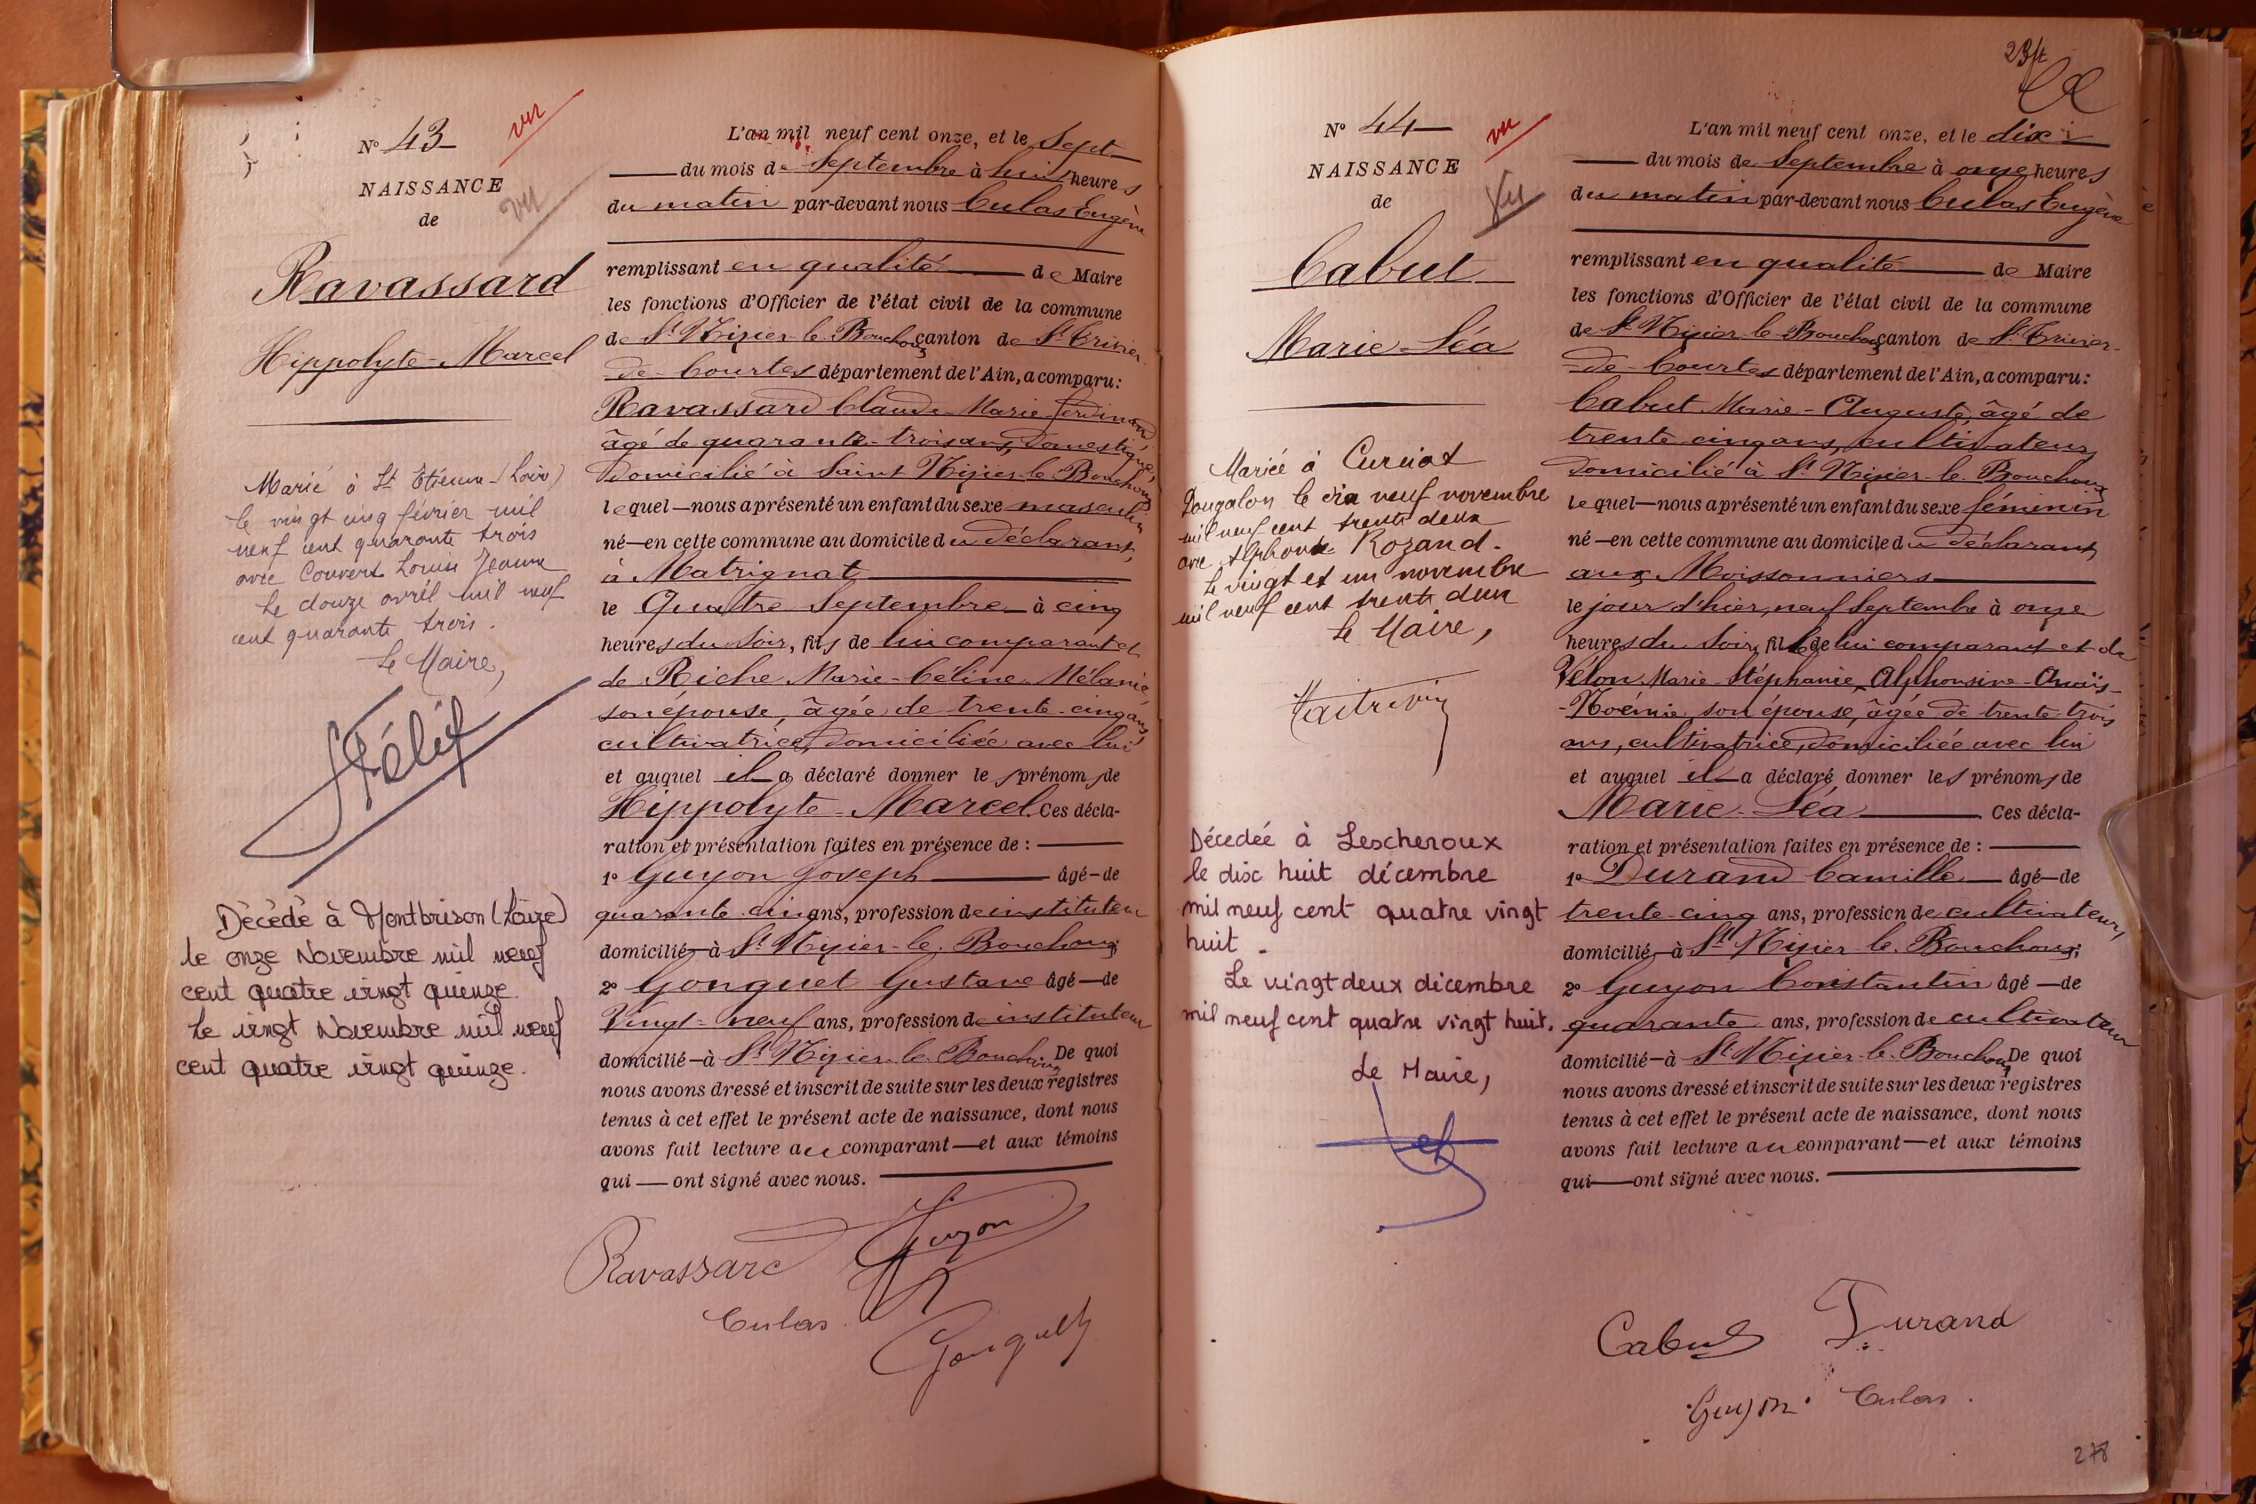 N° 43
vu
NAISSANCE
de
vu
Ravassard
Hippolyte-Marcel
Marié à St Etienne (Loire)
le vingt cinq février mil
neuf cent quarante trois
avec Convert Louise Jeanne
Le douze avril mil neuf
cent quarante trois.
Le Maire,
Décédé à Montbrison (Loire)
le onze Novembre mil neuf
cent quatre vingt quinze.
Le vingt Novembre mil neuf
cent quatre vingt quinze.
L'an mil neuf cent onze, et le Sept
du mois de Septembre à huit heures
du matin par-devant nous Culas Eugène
remplissant en qualité de Maire
les fonctions d'Officier de l'état civil de la commune
de St Nizier-le-Bouchoux canton de St Trivier
de-Courtes département de l'Ain, a comparu:
Ravassard Claude-Marie-Ferdinand
âgé de quarante-trois ans, domestique,
domicilié à Saint Nizier-le-Bouchoux
lequel—nous a présenté un enfant du sexe masculin
né—en cette commune au domicile du déclarant,
à Matrignat
le Quatre Septembre à cinq
heures du soir, fils de lui comparant et
de Riche Marie-Céline-Mélanie
son épouse, âgée de trente-cinq ans,
cultivatrice, domiciliée avec lui
et auquel il a déclaré donner les prénoms de
Hippolyte-Marcel. Ces décla-
ration et présentation faites en présence de :
1° Guyon Joseph âgé—de
quarante-cinq ans, profession de instituteur
domicilié—à St Nizier-le-Bouchoux;
2° Gonguet Gustave âgé—de
Vingt-neuf ans, profession de instituteur
domicilié—à St Nizier-le-Bouchoux De quoi
nous avons dressé et inscrit de suite sur les deux registres
tenus à cet effet le présent acte de naissance, dont nous
avons fait lecture au comparant—et aux témoins
qui — ont signé avec nous.
Ravassard
Guyon
Culas.
Gonguet
N° 44
vu
NAISSANCE
de
Vu
Cabut
Marie-Léa
Mariée à Curciat
Dongalon le dix neuf novembre
mil neuf cent trente deux
avec Alphonse Rozand.
Le vingt et un novembre
mil neuf cent trente deux
Le Maire,
Décedée à Lescheroux
le dix huit décembre
mil neuf cent quatre vingt
huit.
Le vingt deux décembre
mil neuf cent quatre vingt huit.
Le Maire,
L'an mil neuf cent onze, et le dix
du mois de Septembre à onze heures
du matin par-devant nous Culas Eugène
remplissant en qualité de Maire
les fonctions d'Officier de l'état civil de la commune
de St Nizier-le-Bouchoux canton de St Trivier-
de-Courtes département de l'Ain, a comparu:
Cabut Marie-Auguste âgé de
trente cinq ans, cultivateur,
domicilié à St Nizier-le-Bouchoux
lequel—nous a présenté un enfant du sexe féminin
né—en cette commune au domicile du déclarant,
aux Moissonniers
le jour d'hier, neuf Septembre à onze
heures du soir, fille de lui comparant et de
Vélon Marie-Stéphanie-Alphonsine-Anaïs-
-Noémie, son épouse, âgée de trente-trois
ans, cultivatrice, domiciliée avec lui
et auquel il a déclaré donner les prénoms de
Marie-Léa Ces décla-
ration et présentation faites en présence de :
1° Durand Camille âgé—de
trente-cinq ans, profession de cultivateur,
domicilié—à St Nizier-le-Bouchoux;
2° Guyon Constantin âgé—de
quarante ans, profession de cultivateur
domicilié—à St Nizier-le-Bouchoux De quoi
nous avons dressé et inscrit de suite sur les deux registres
tenus à cet effet le présent acte de naissance, dont nous
avons fait lecture au comparant—et aux témoins
qui—ont signé avec nous.
Cabut
Durand
Guyon
Culas.
278